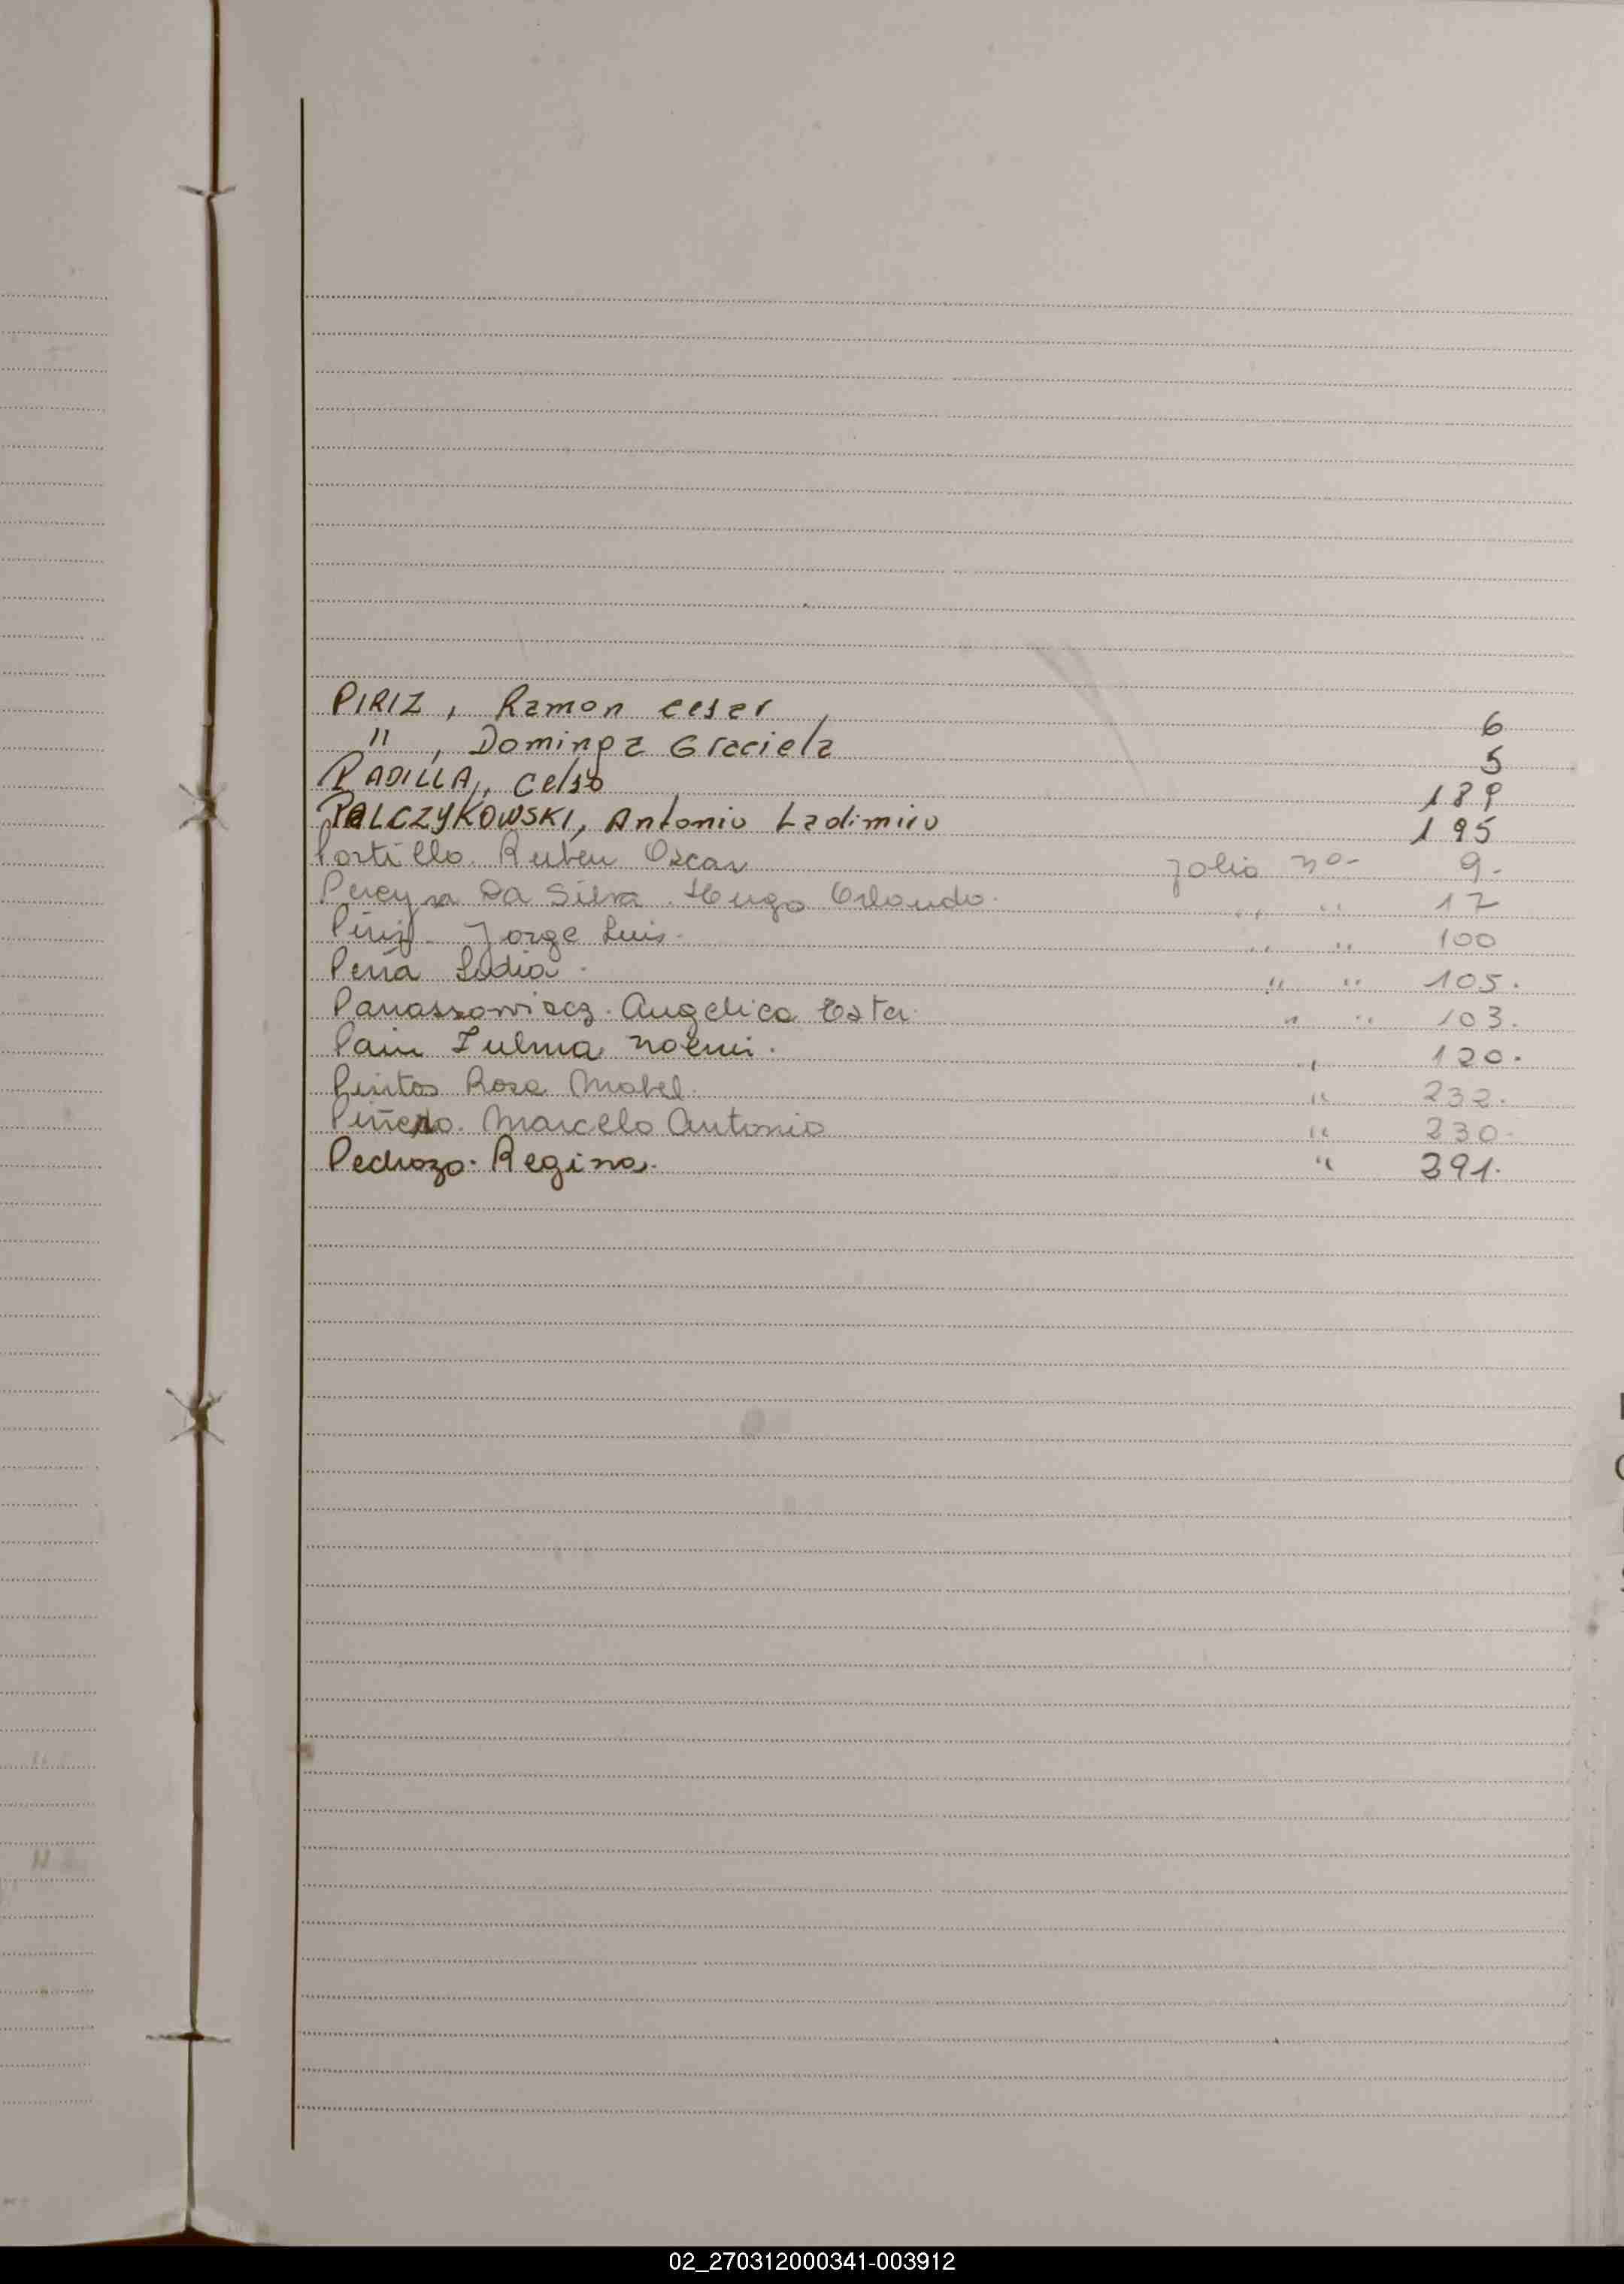 PIRIZ, Ramon Cesar 6
" , Dominga Graciela 5
PADILLA, Celso 189
PALCZYKOWSKI, Antonio Ladimiro 195
Portillo. Ruben Oscar folio nº- 9-
Pereyra Da Silva. Hugo Orlando. " " 17
Piriz. Jorge Luis. " " 100
Peña Lidia. " " 105.
Angelica Ester. " " 103.
Pain Zulma Noemi. " 120.
Pintos Rosa Mabel. " 232.
Piñero. Marcelo Antonio " 230-
Pedrozo. Regina. " 391.
02_270312000341-003912